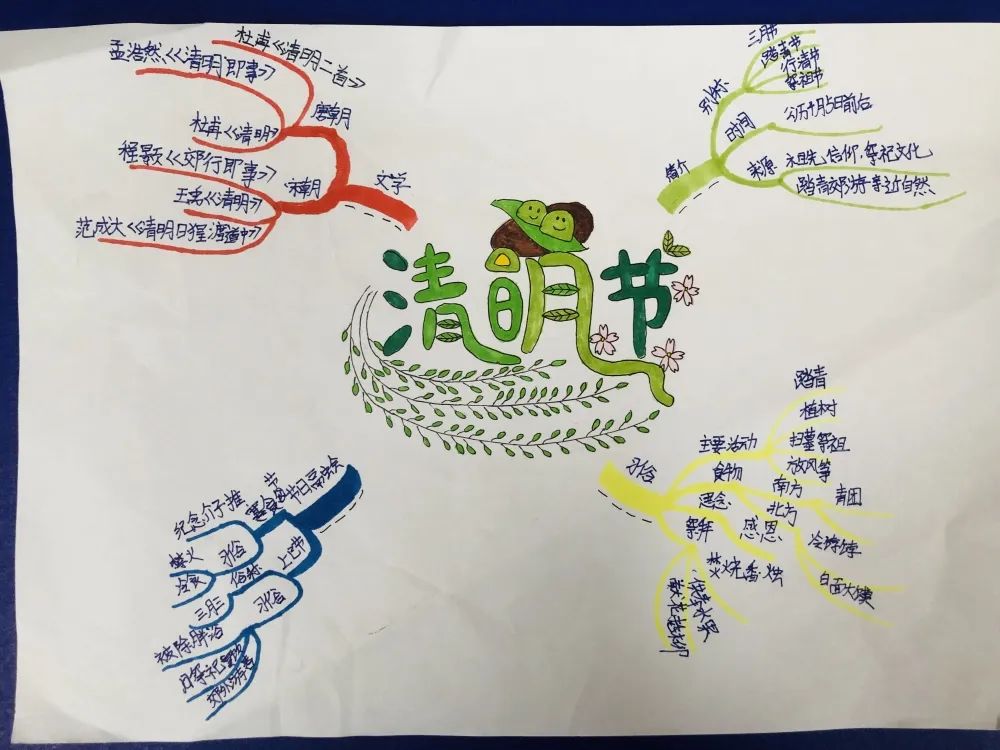 清明节
文学
唐朝
杜甫《清明二首》
孟浩然《清明即事》
杜甫《清明》
宋朝
程颢《郊行即事》
王禹《清明》
范成大《清明日狸渡道中》
简介
别称
三月节
踏青节
行清节
祭祖节
时间
公历4月5日前后
来源
祖先信仰,祭祀文化
踏青郊游亲近自然
习俗
主要活动
踏青
植树
扫墓祭祖
放风筝
食物
南方
青团
北方
冷饽饽
白面大馍
理念
感恩
祭拜
焚烧香烛
供奉水果
节日融合
寒食节
纪念介子推
习俗
禁火
冷食
上巳节
俗称
三月三
习俗
祓除畔浴
郊外游春